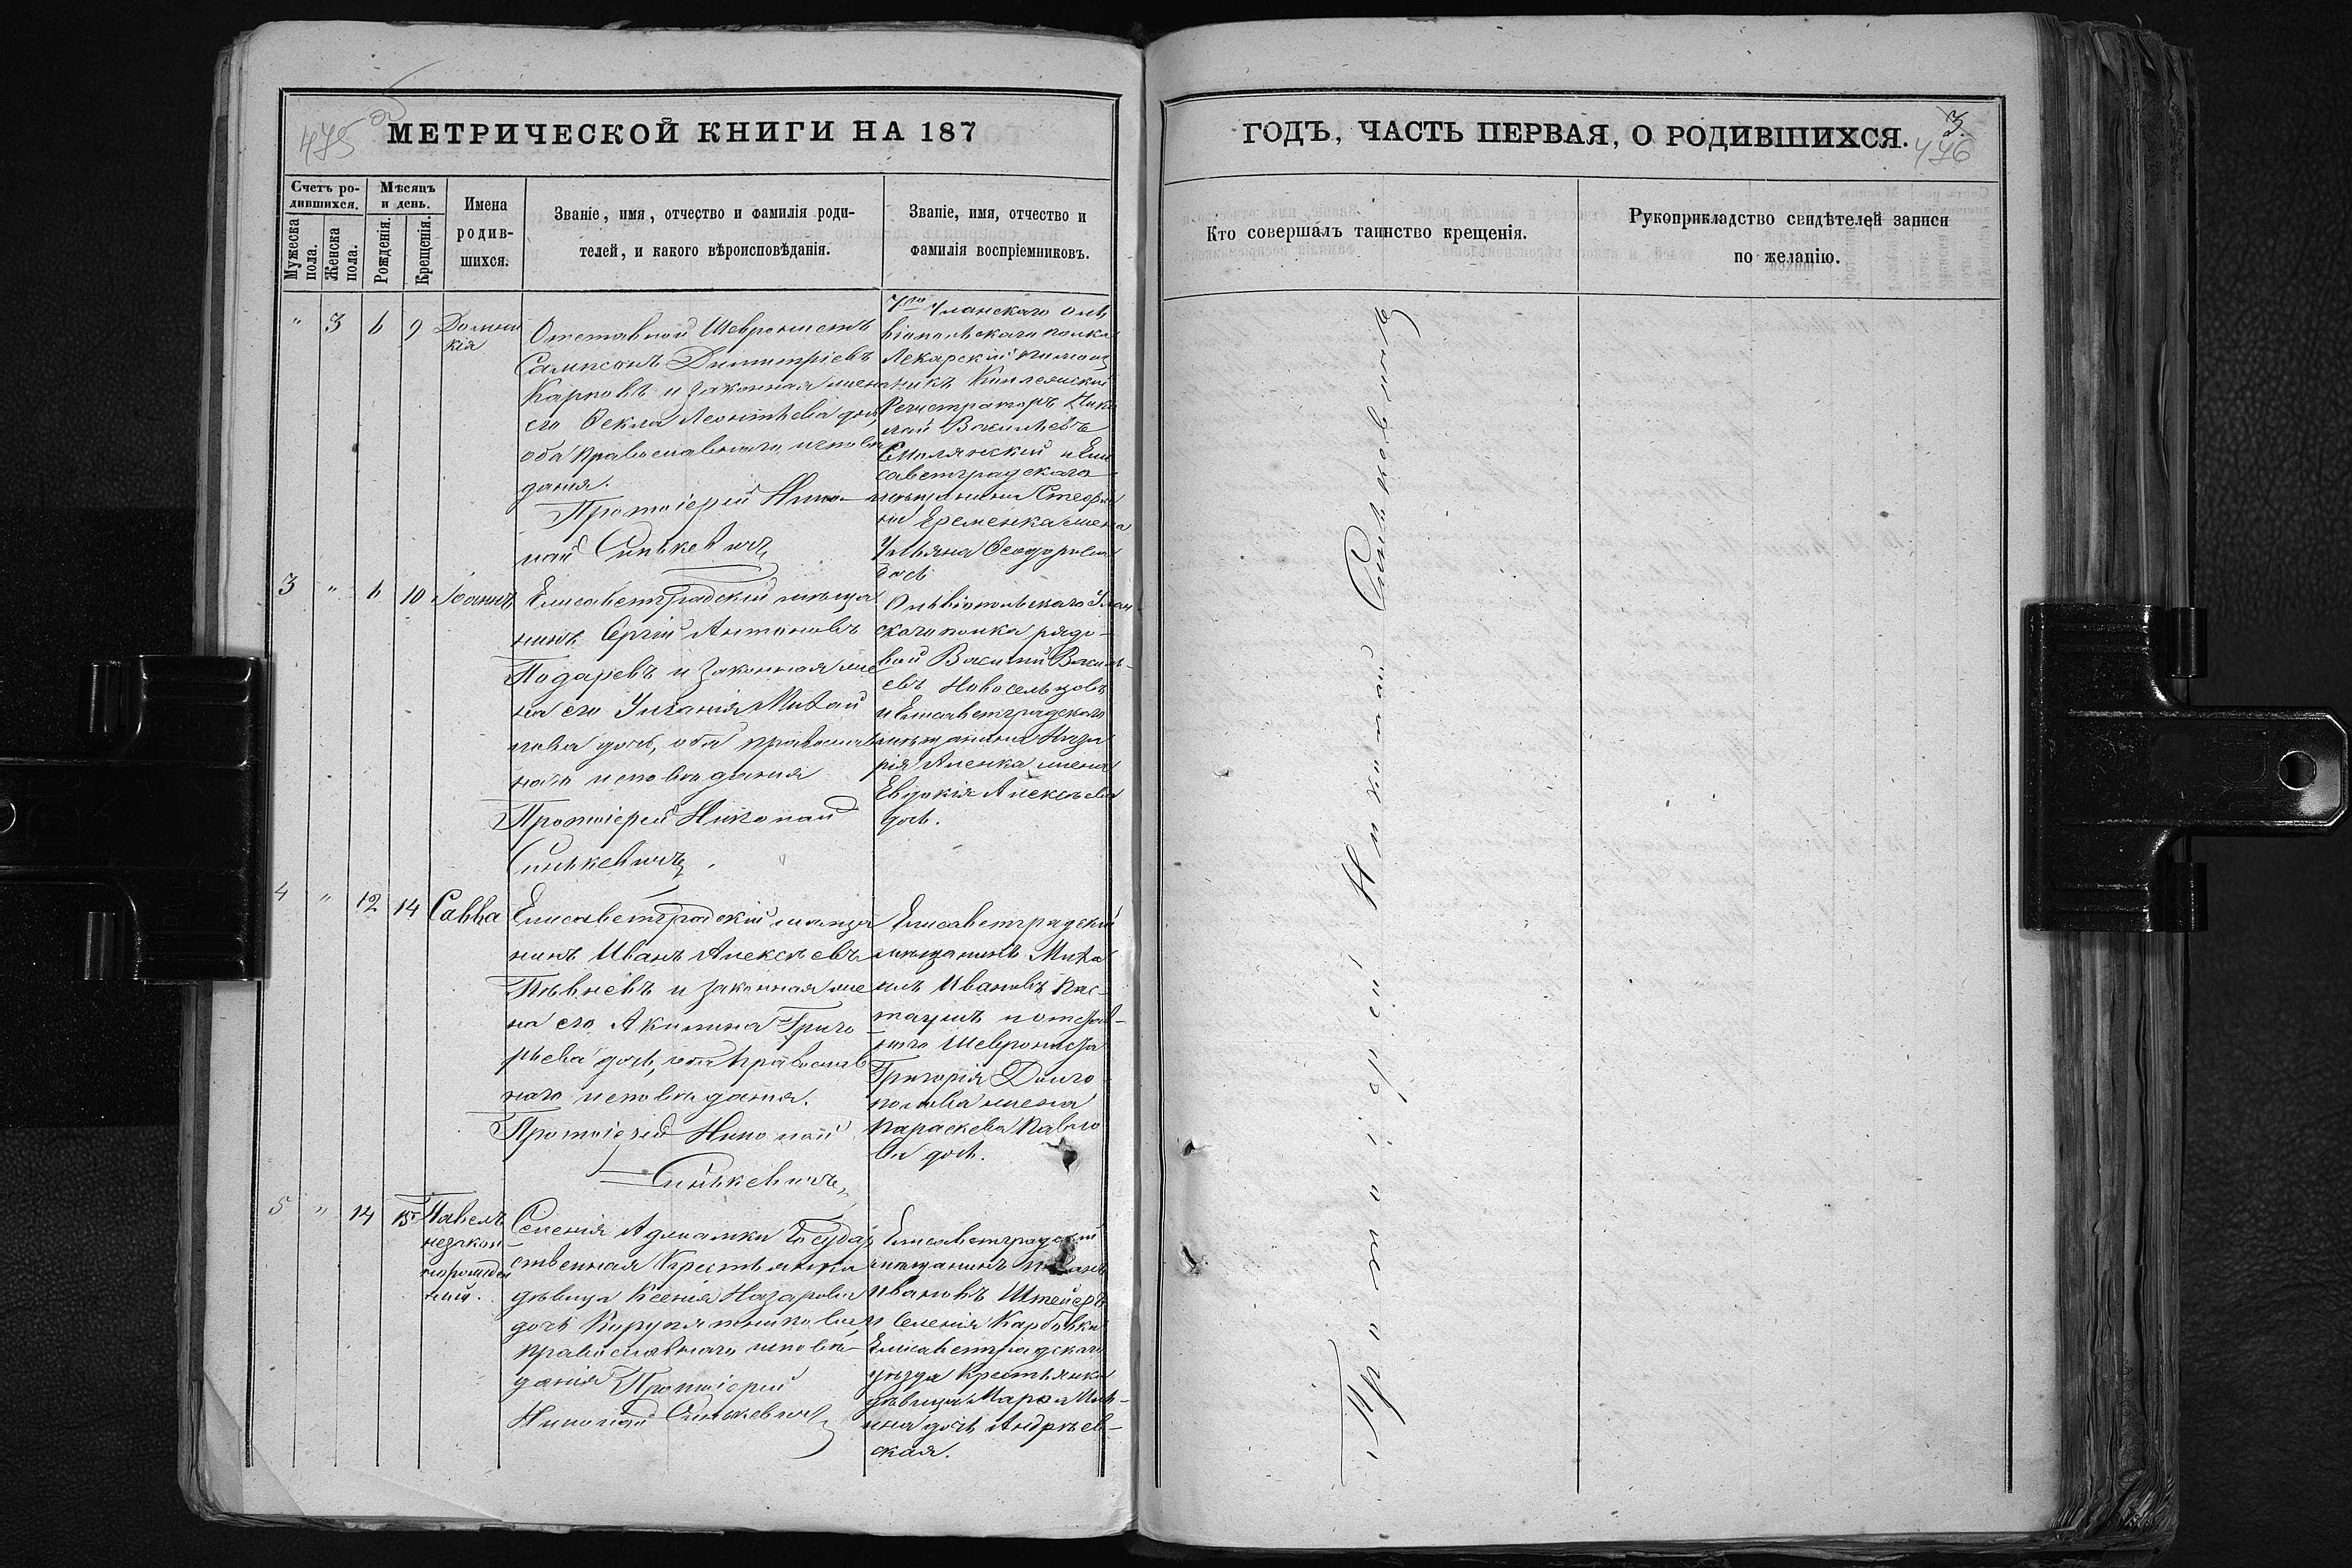 475 об
МЕТРИЧЕСКОЙ КНИГИ НА 187
Счетъ ро-
дившихся.
Мужеска пола.
Женска пола.
Мѣсяцъ
и день.
Рожденія.
Крещенія.
Имена
родив-
шихся.
Званіе, имя, отчество и фамилія роди-
телей, и какого вѣроисповѣданія.
Званіе, имя, отчество и
фамилія воспріемниковъ.
" 3 6 9
Домни
кія
Отставной Шевронистъ
Сампсонъ Димитріевъ
Карповъ и законная жена
его Ѳекла Леонтьева дочь,
оба православнаго исповѣ
данія.
Протоіерей Нико-
лай Синькевичъ
7го Уланскаго Оль
віопольскаго полка
Лекарскій помощ
никъ Коллежскій
Регистраторъ Нико
лай Васильевъ
Смолянскій и Ели
саветградскаго
мѣщанина
Еременка жена
Ульяна Ѳеодорова
дочь
3 " 6 10 Іоаннъ
Елисаветградскій мѣща
нинъ Сергій Антоновъ
Подаревъ и законная же
на его Михаи
лова дочь, оба православ
наго исповѣданія
Протоіерей Николай
Синькевичъ
Ольвіопольскаго Улан-
скаго полка рядо-
вой Василий Василь-
евъ Новосельцовъ
и Елисаветградскаго
мѣщанина Наза
рія Аленка жена
Евдокія Алексѣева
дочь.
4 " 12 14 Савва
Елисаветградскій мѣща
нинъ Иванъ Алексѣевъ
Пѣвневъ и законная же
на его Акилина Григо
рьева дочь, оба православ
наго исповѣданія.
Протоіерей Николай
Синькевичъ
Елисаветградскій
мѣщанинъ Миха
илъ Ивановъ
и отстав-
наго Шеврониста
Григорія Долго
полова жена
Параскева Павло
ва дочь.
5 " 14 15 Павелъ
незакон-
норожден
ный.
Селенія Аджамки Государ
ственная Крестьянка
дѣвица Ксенія Назарова
дочь
православнаго исповѣ-
данія Протоіерей
Николай Синькевичъ
Елисаветградскій
мѣщанинъ Иванъ
Ивановъ Штейеръ
и селенія Карловки
Елисаветградскаго
уѣзда Крестьянка
дѣвица Марѳа Иль-
ина дочь Андреев-
ская.
ГОДЪ, ЧАСТЬ ПЕРВАЯ, О РОДИВШИХСЯ.
3.
476
Кто совершалъ таинство крещенія.
Рукоприкладство свидѣтелей записи
по желанію.
Протоіерей Николай Синькевичъ